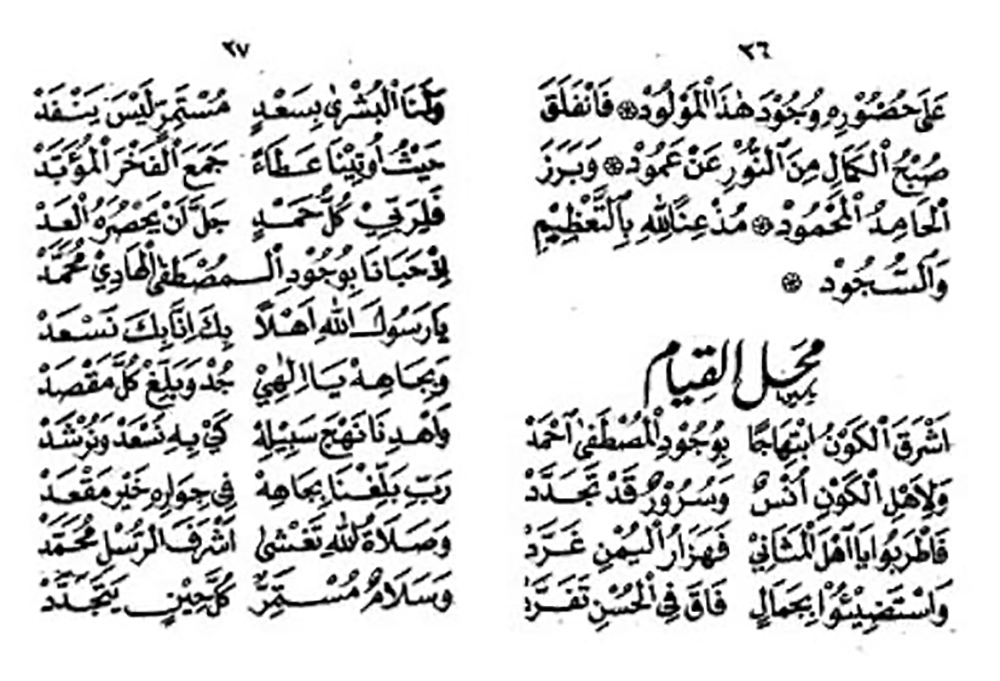 ٣٦
عَلَى حُضُوْرِهِ وُجُوْدَ هٰذَا الْمَوْلُوْدْ ۞ فَانْفَلَقَ
صُبْحُ الْكَمَالِ مِنَ النُّوْرِ عَنْ عَمُوْدْ ۞ وَبَرَزَ
الْحَامِدُ الْمَحْمُوْدْ ۞ مُذْعِنًا لِلّٰهِ بِالتَّعْظِيْمِ
وَالسُّجُوْدْ ۞
محل القيام
اَشْرَقَ الْكَوْنُ ابْتِهَاجًا بِوُجُوْدِ الْمُصْطَفٰى احْمَدْ
وَلِاَهْلِ الْكَوْنِ اُنْسٌ وَسُرُوْرٌ قَدْ تَجَدَّدْ
فَاطْرَبُوْا يَا اَهْلَ الْمَثَانِيْ فَهَزَارُ الْيُمْنِ غَرَّدْ
وَاسْتَضِيْئُوْا بِجَمَالٍ فَاقَ فِي الْحُسْنِ تَفَرَّدْ
٣٧
وَلَنَا الْبُشْرٰى بِسَعْدٍ مُسْتَمِرٍّ لَيْسَ يَنْفَدْ
حَيْثُ اُوْتِيْنَا عَطَاءً جَمَعَ الْفَخْرَ الْمُؤَبَّدْ
فَلِرَبِّيْ كُلُّ حَمْدٍ جَلَّ اَنْ يَحْصُرَهُ الْعَدْ
اِذْ حَبَانَا بِوُجُوْدِ الْمُصْطَفٰى الْهَادِيْ مُحَمَّدْ
يَا رَسُوْلَ اللهِ اَهْلًا بِكَ اِنَّا بِكَ نَسْعَدْ
وَبِجَاهِهْ يَا اِلٰهِيْ جُدْ وَبَلِّغْ كُلَّ مَقْصَدْ
وَاهْدِنَا نَهْجَ سَبِيْلِهْ كَيْ بِهِ نَسْعَدْ وَنُرْشَدْ
رَبِّ بَلِّغْنَا بِجَاهِهْ فِيْ جِوَارِهِ خَيْرَ مَقْعَدْ
وَصَلَاةُ اللهِ تَغْشٰى اَشْرَفَ الرُّسْلِ مُحَمَّدْ
وَسَلَامٌ مُسْتَمِرٌّ كُلَّ حِيْنٍ يَتَجَدَّدْ